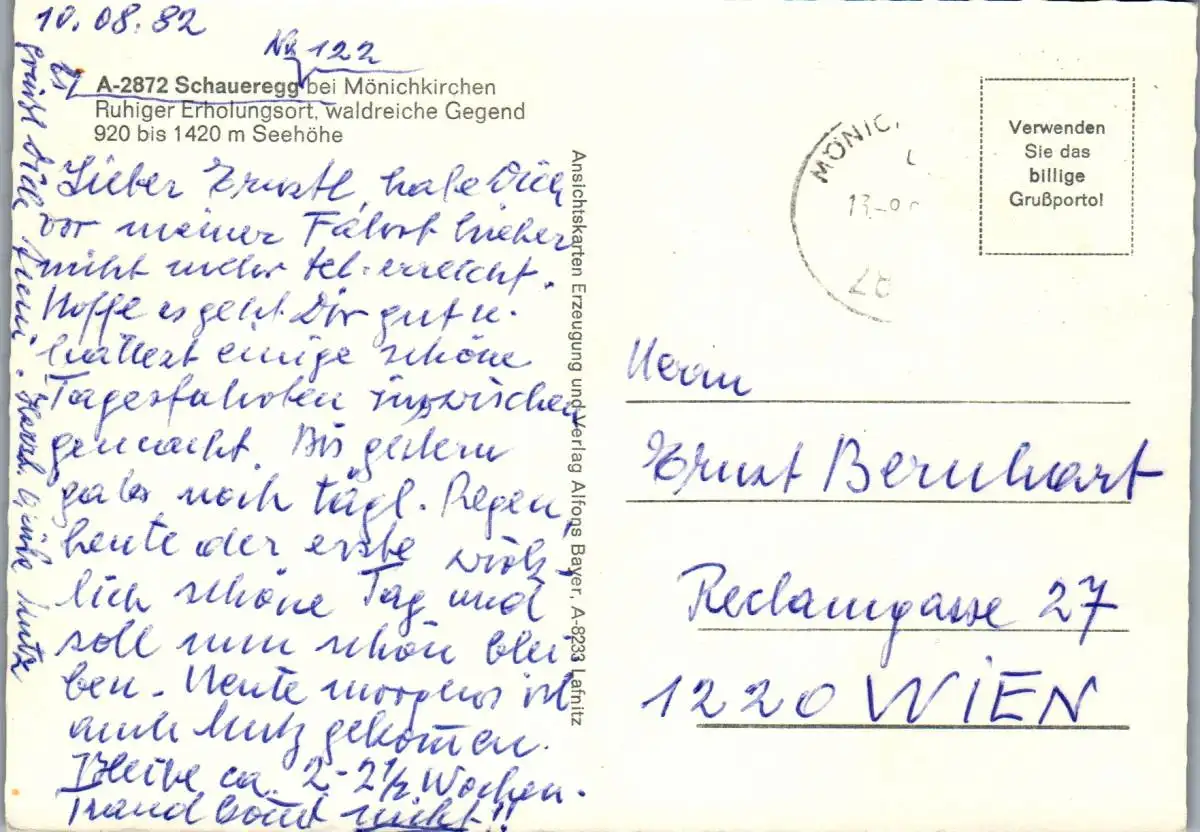 10.08.82
Nr 122
A-2872 Schaueregg bei Mönichkirchen
Ruhiger Erholungsort, waldreiche Gegend
920 bis 1420 m Seehöhe
Lieber Ernstl, habe Dich
vor meiner Fahrt hieher
nicht mehr tel. erreicht.
Hoffe es geht Dir gut u.
hattest einige schöne
Tagesfahrten inzwischen
gemacht. Bis gestern
gab es noch tägl. Regen,
heute der erste wirk-
lich schöne Tag und
soll nun schön blei-
ben. Heute morgens ist
auch Mutz gekommen.
Bleibe ca. 2-2½ Wochen.
Traudl kommt nicht!!
Es
grüßt Dich
Herzl. Grüße Mutz
Ansichtskarten Erzeugung und Verlag Alfons Bayer, A-8233 Lafnitz
MÖNIC
13.-
Verwenden
Sie das
billige
Grußporto!
Herrn
Ernst Bernhart
Reclamgasse 27
1220 WIEN